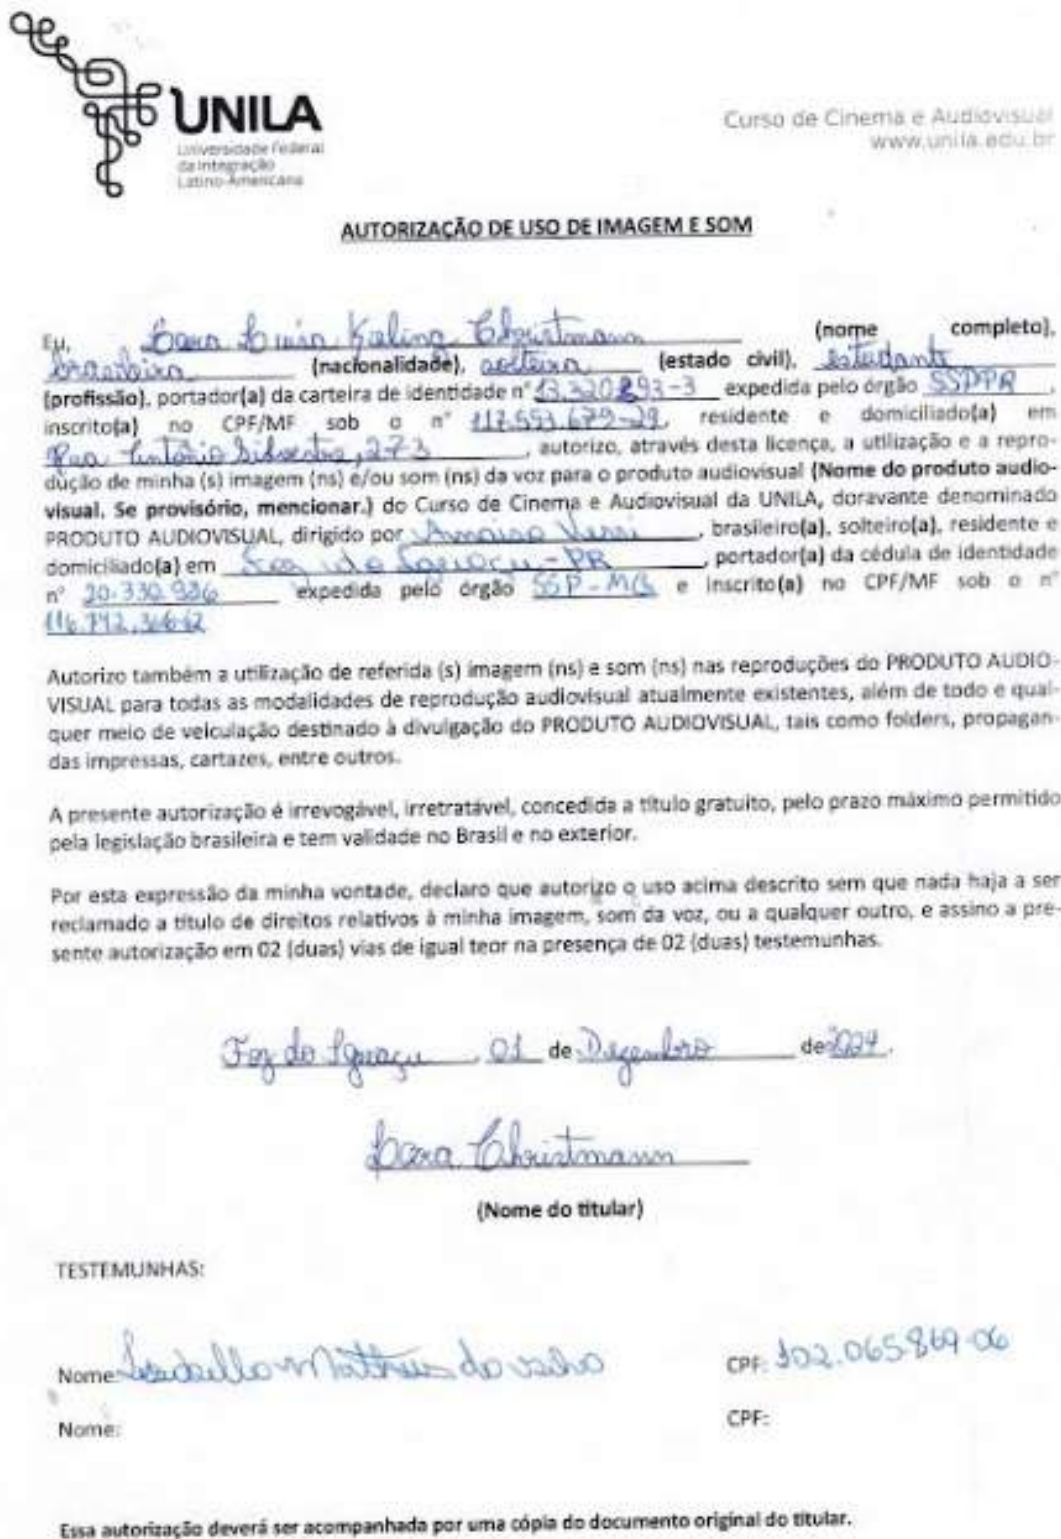 UNILA
Universidade Federal
da Integração
Latino-Americana
Curso de Cinema e Audiovisual
www.unila.edu.br
AUTORIZAÇÃO DE USO DE IMAGEM E SOM
Eu, Luisa Christmann (nome completo),
brasileira (nacionalidade), solteira (estado civil), estudante
(profissão), portador(a) da carteira de identidade n° expedida pelo órgão SSPPR ,
inscrito(a) no CPF/MF sob o n° residente e domiciliado(a) em
Rua Antônio Silvestre, 273 , autorizo, através desta licença, a utilização e a repro-
dução de minha (s) imagem (ns) e/ou som (ns) da voz para o produto audiovisual (Nome do produto audio-
visual. Se provisório, mencionar.) do Curso de Cinema e Audiovisual da UNILA, doravante denominado
PRODUTO AUDIOVISUAL, dirigido por , brasileiro(a), solteiro(a), residente e
domiciliado(a) em Foz do Iguaçu - PR , portador(a) da cédula de identidade
n° 20.330.936 expedida pelo órgão SSP-MG e inscrito(a) no CPF/MF sob o n°
Autorizo também a utilização de referida (s) imagem (ns) e som (ns) nas reproduções do PRODUTO AUDIO-
VISUAL para todas as modalidades de reprodução audiovisual atualmente existentes, além de todo e qual-
quer meio de veiculação destinado à divulgação do PRODUTO AUDIOVISUAL, tais como folders, propagan-
das impressas, cartazes, entre outros.
A presente autorização é irrevogável, irretratável, concedida a título gratuito, pelo prazo máximo permitido
pela legislação brasileira e tem validade no Brasil e no exterior.
Por esta expressão da minha vontade, declaro que autorizo o uso acima descrito sem que nada haja a ser
reclamado a título de direitos relativos à minha imagem, som da voz, ou a qualquer outro, e assino a pre-
sente autorização em 02 (duas) vias de igual teor na presença de 02 (duas) testemunhas.
Foz do Iguaçu , 01 de Dezembro de 2024 .
Christmann
(Nome do titular)
TESTEMUNHAS:
Nome: Mattheus do CPF: 102.065.869-06
Nome: CPF:
Essa autorização deverá ser acompanhada por uma cópia do documento original do titular.